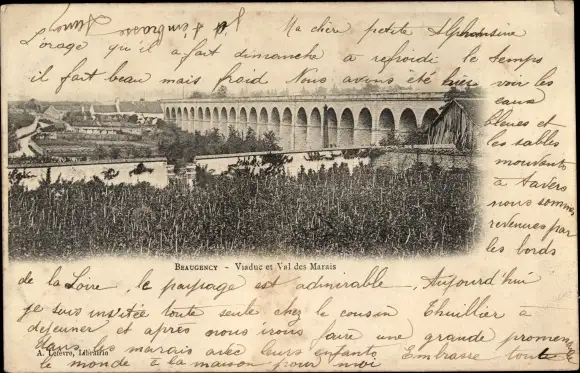 Ma chère petite Alphonsine
L'orage qu'il a fait dimanche a refroidi le temps
il fait beau mais froid Nous avons été hier voir les
eaux
bleues et les sables
mouvants
à Tavers
nous sommes
revenues par
les bords
BEAUGENCY - Viaduc et Val des Marais
de la Loire, le paysage est admirable, Aujourd'hui
je suis invitée toute seule chez le cousin Thuillier à
déjeuner et après nous irons faire une grande promenade
dans les marais avec leurs enfants Embrasse toute
A. Lefèvre, Librairie
le monde à la maison pour moi